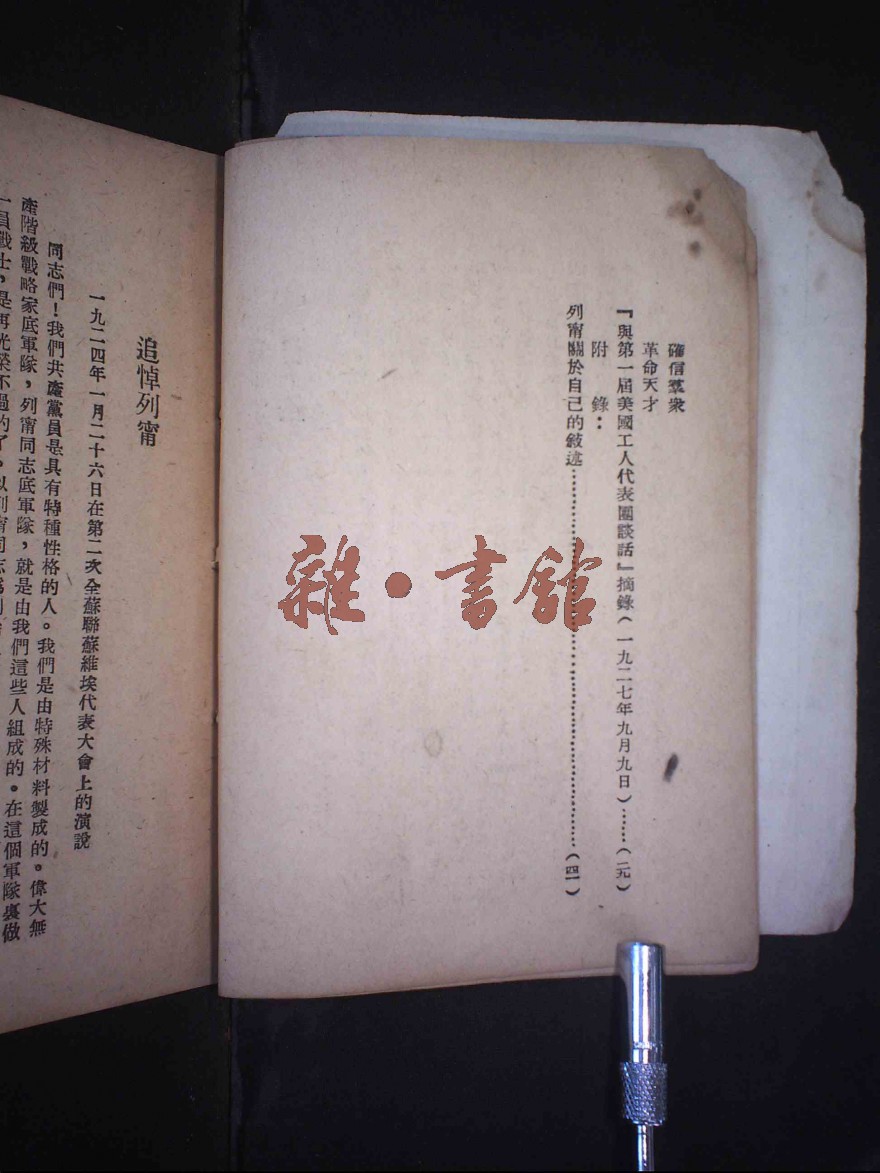 確信羣衆
革命天才
『與第一屆美國工人代表團談話』摘錄(一九二七年九月九日)……(二九)
附 錄:
列甯關於自己的敘述……(四一)
雜·書館
追悼列甯
一九二四年一月二十六日在第二次全蘇聯蘇維埃代表大會上的演說
同志們!我們共產黨員是具有特種性格的人。我們是由特殊材料製成的。偉大無
產階級戰略家底軍隊,列甯同志底軍隊,就是由我們這些人組成的。在這個軍隊裏做
一員戰士,是再光榮不過的了。以列甯同志爲創